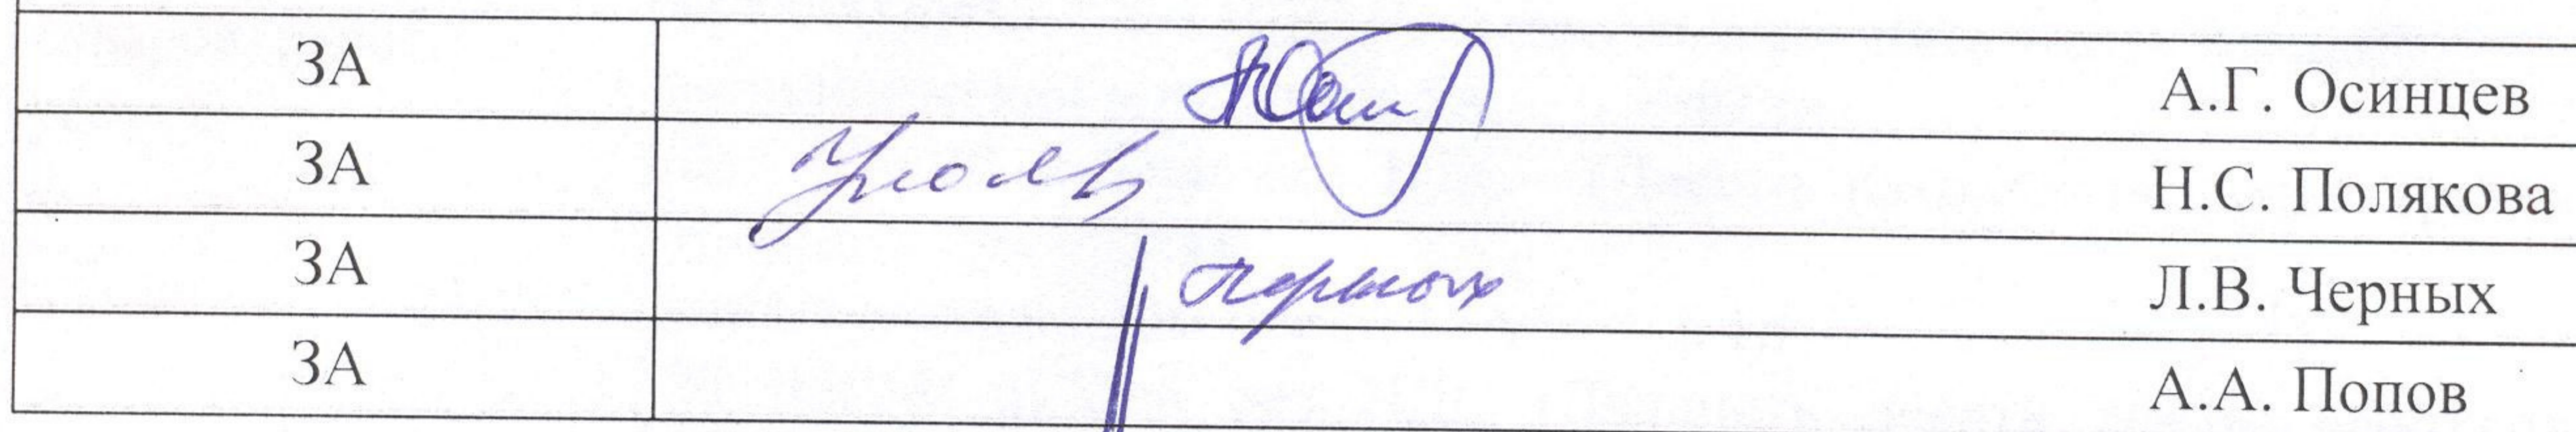 ЗА А.Г. Осинцев
ЗА Н.С. Полякова
ЗА Черных Л.В. Черных
ЗА А.А. Попов